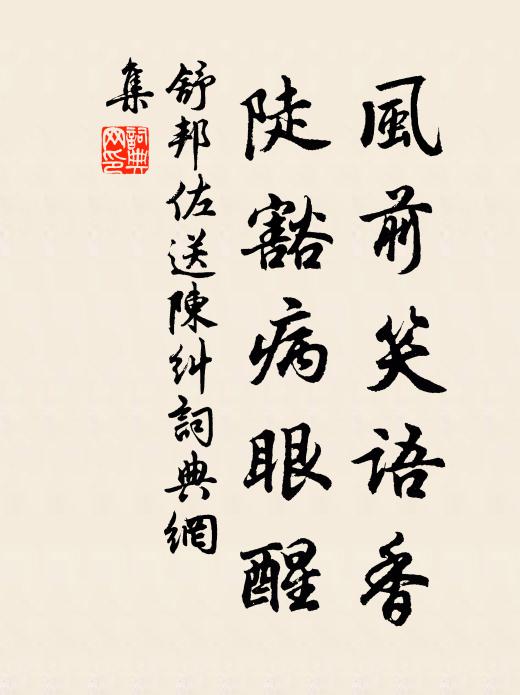 風前笑語香
陡豁病眼醒
舒邦佐送陳糾詞典網
集
詞典網印